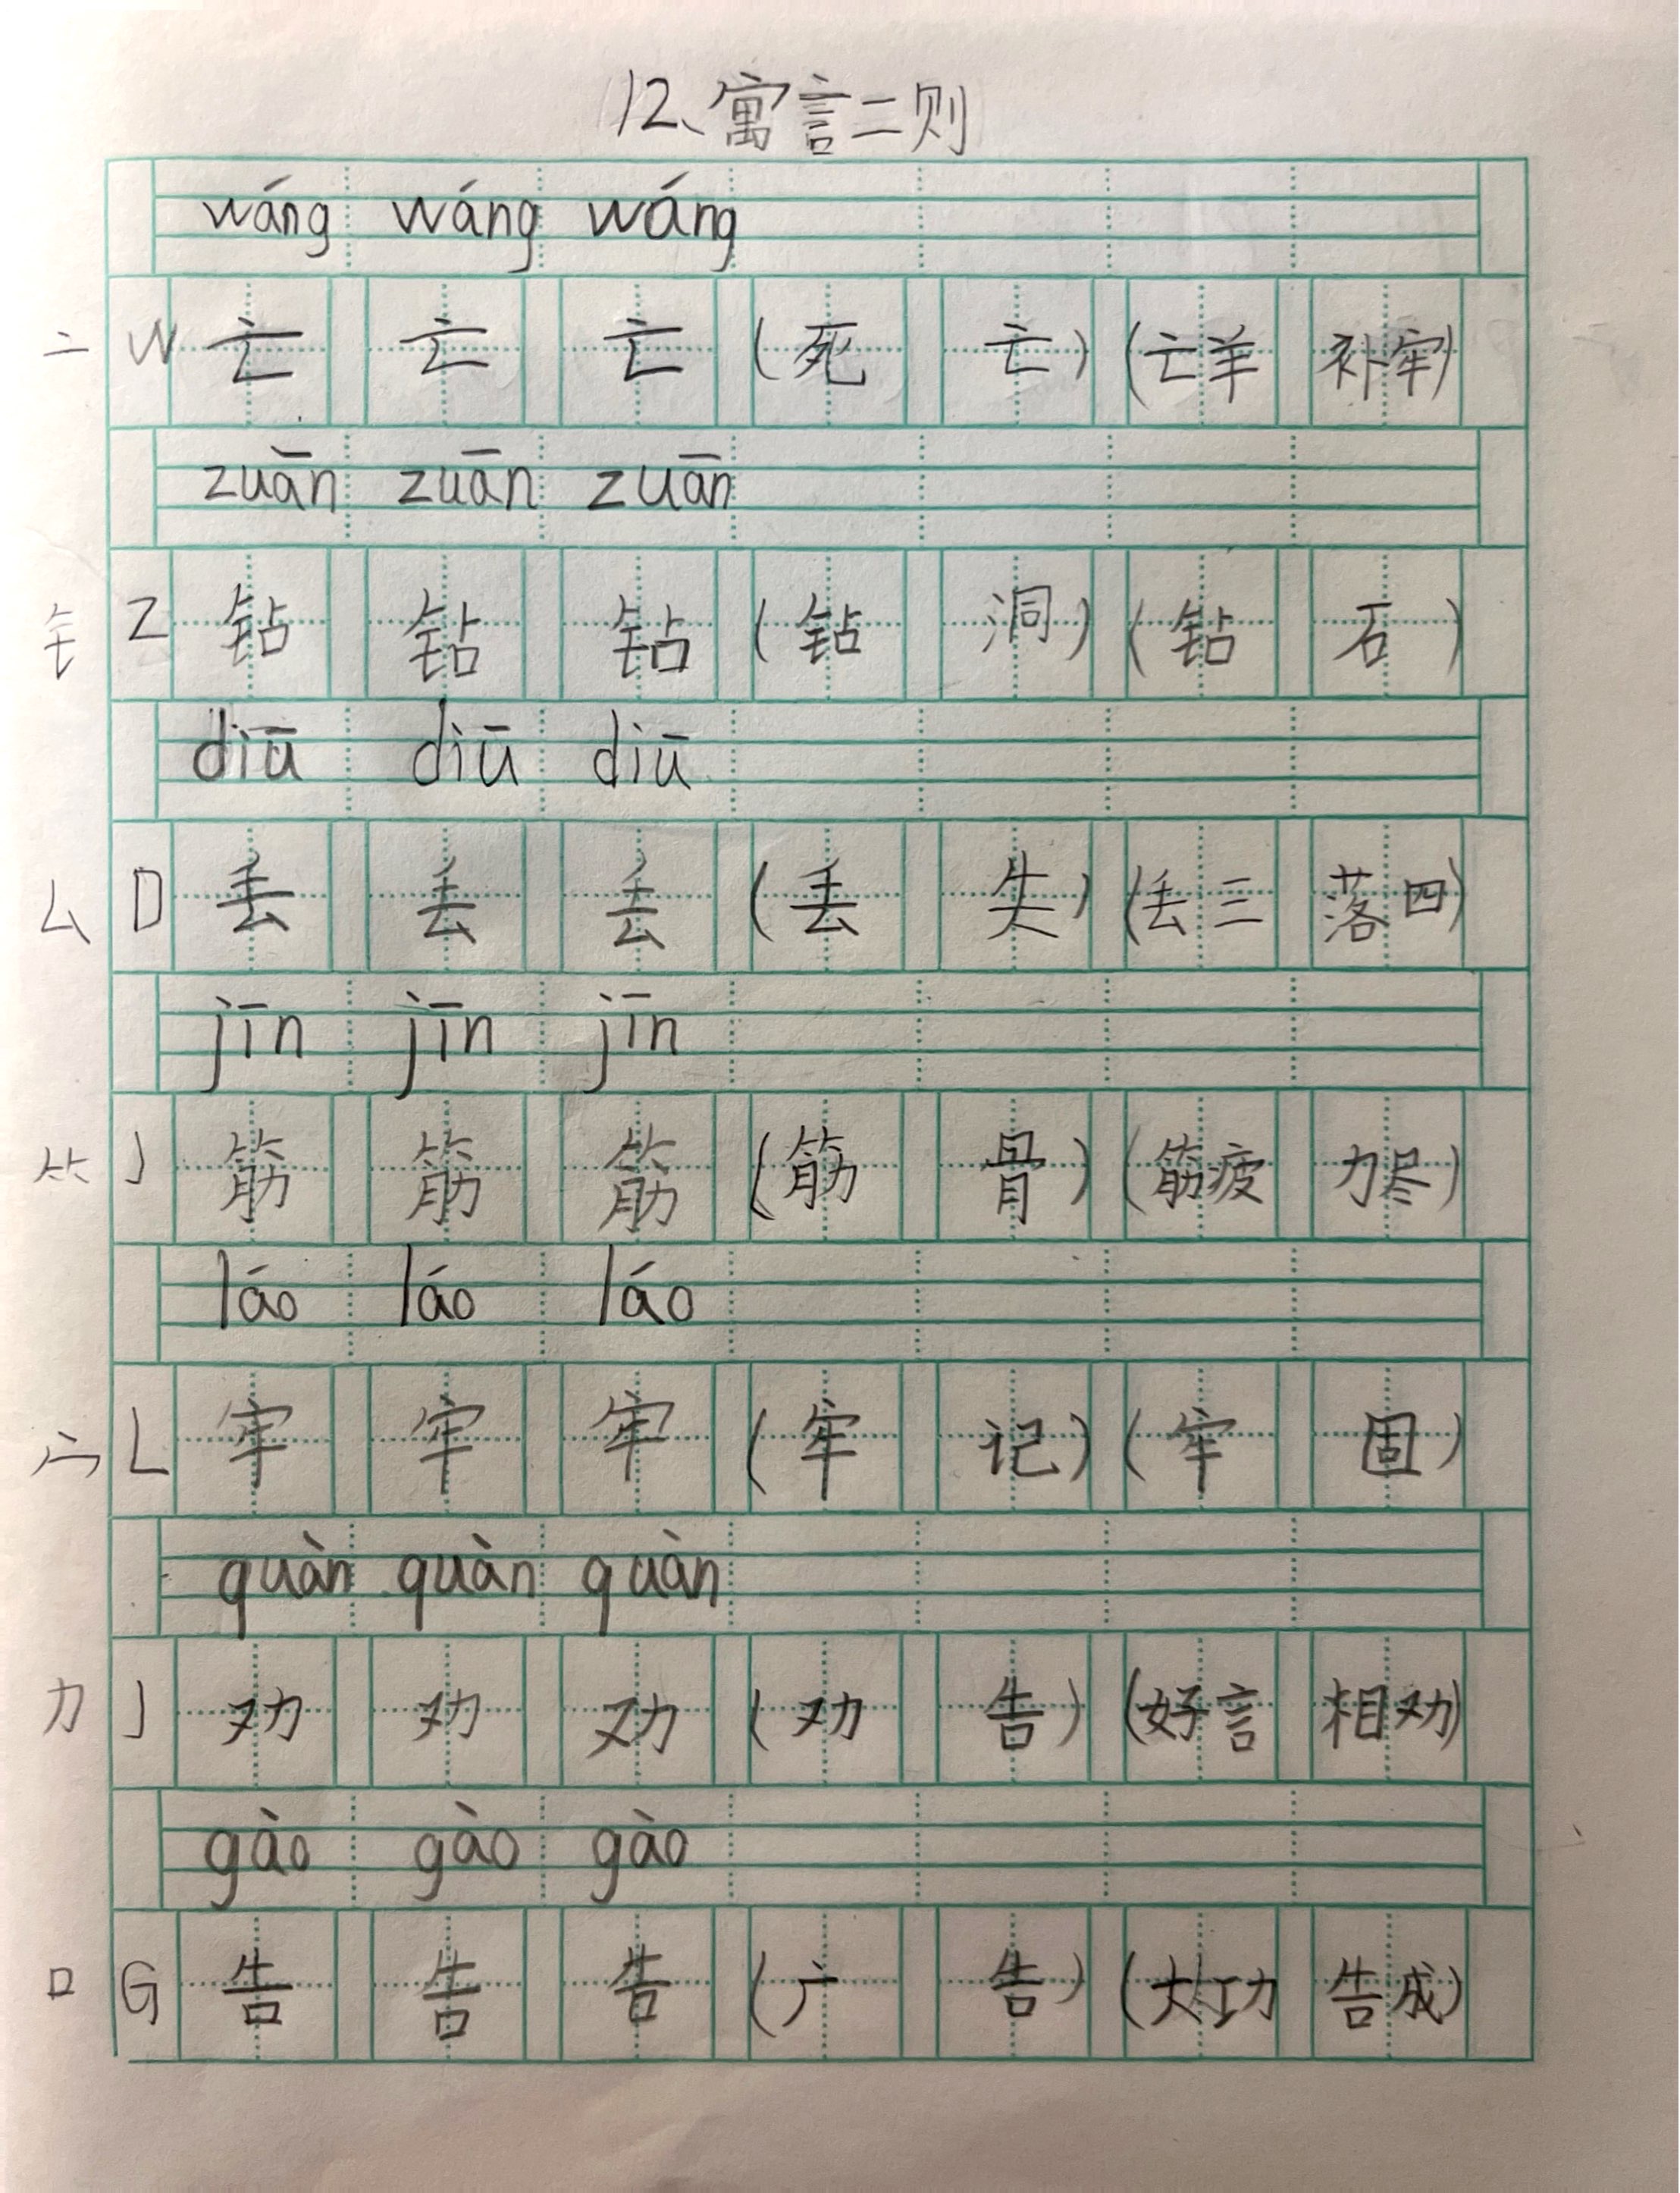 12、寓言二则
wáng wáng wáng
亠 W 亡 亡 亡 (死 亡) (亡羊 补牢)
zuān zuān zuān
钅 Z 钻 钻 钻 (钻 洞) (钻 石)
diū diū diū
厶 D 丢 丢 丢 (丢 失) (丢三 落四)
jīn jīn jīn
⺮ J 筋 筋 筋 (筋 骨) (筋疲 力尽)
láo láo láo
宀 L 牢 牢 牢 (牢 记) (牢 固)
quàn quàn quàn
力 J 劝 劝 劝 (劝 告) (好言 相劝)
gào gào gào
口 G 告 告 告 (广 告) (大功 告成)